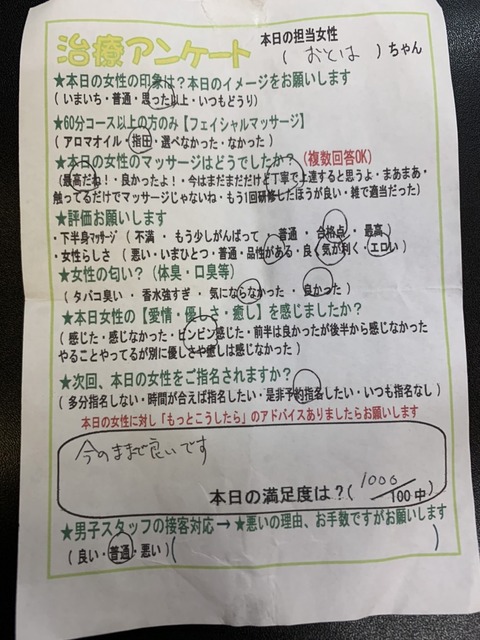 治療アンケート
本日の担当女性
( おとは )ちゃん
★本日の女性の印象は?本日のイメージをお願いします
( いまいち・普通・思った以上・いつもどうり)
★60分コース以上の方のみ【フェイシャルマッサージ】
( アロマオイル・指圧・選べなかった・なかった)
★本日の女性のマッサージはどうでしたか?(複数回答OK)
(最高だね!・良かったよ!・今はまだまだだけど丁寧で上達すると思うよ・まあまあ・
触ってるだけでマッサージじゃないね・もう1回研修したほうが良い・雑で適当だった)
★評価お願いします
・下半身マッサージ ( 不満 ・ もう少しがんばって ・ 普通 ・ 合格点 ・ 最高 )
・女性らしさ ( 悪い・いまひとつ・普通・品性がある・良く気が利く・エロい )
★女性の匂い? (体臭・口臭等)
( タバコ臭い ・ 香水強すぎ ・ 気にならなかった ・ 良かった )
★本日女性の【愛情・優しさ・癒し】を感じましたか?
( 感じた・感じなかった・ビンビン感じた・前半は良かったが後半から感じなかった
やることやってるが別に優しさや癒しは感じなかった )
★次回、本日の女性をご指名されますか?
( 多分指名しない・時間が合えば指名したい・是非予約指名したい・いつも指名なし )
本日の女性に対し「もっとこうしたら」のアドバイスありましたらお願いします
今のままで良いです
本日の満足度は?( 1000/100中)
★男子スタッフの接客対応→★悪いの理由、お手数ですがお願いします
( 良い・普通・悪い )( )